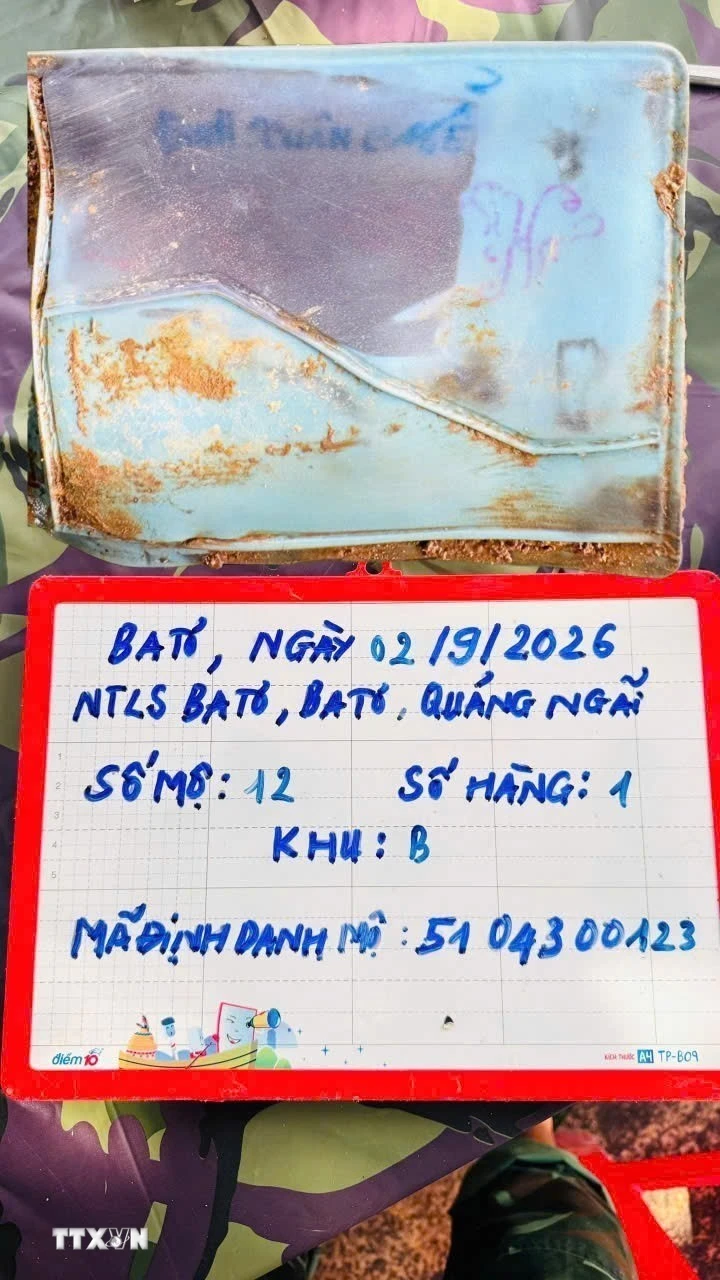 BATƠ, NGÀY 02/9/2026
NTLS BATƠ, BATƠ, QUẢNG NGÃI
SỐ MỘ: 12 SỐ HÀNG: 1
KHU: B
MÃ ĐỊNH DANH MỘ: 51 043 00123
điểm10
KÍCH THƯỚC A4 TP-B09
TTXVN